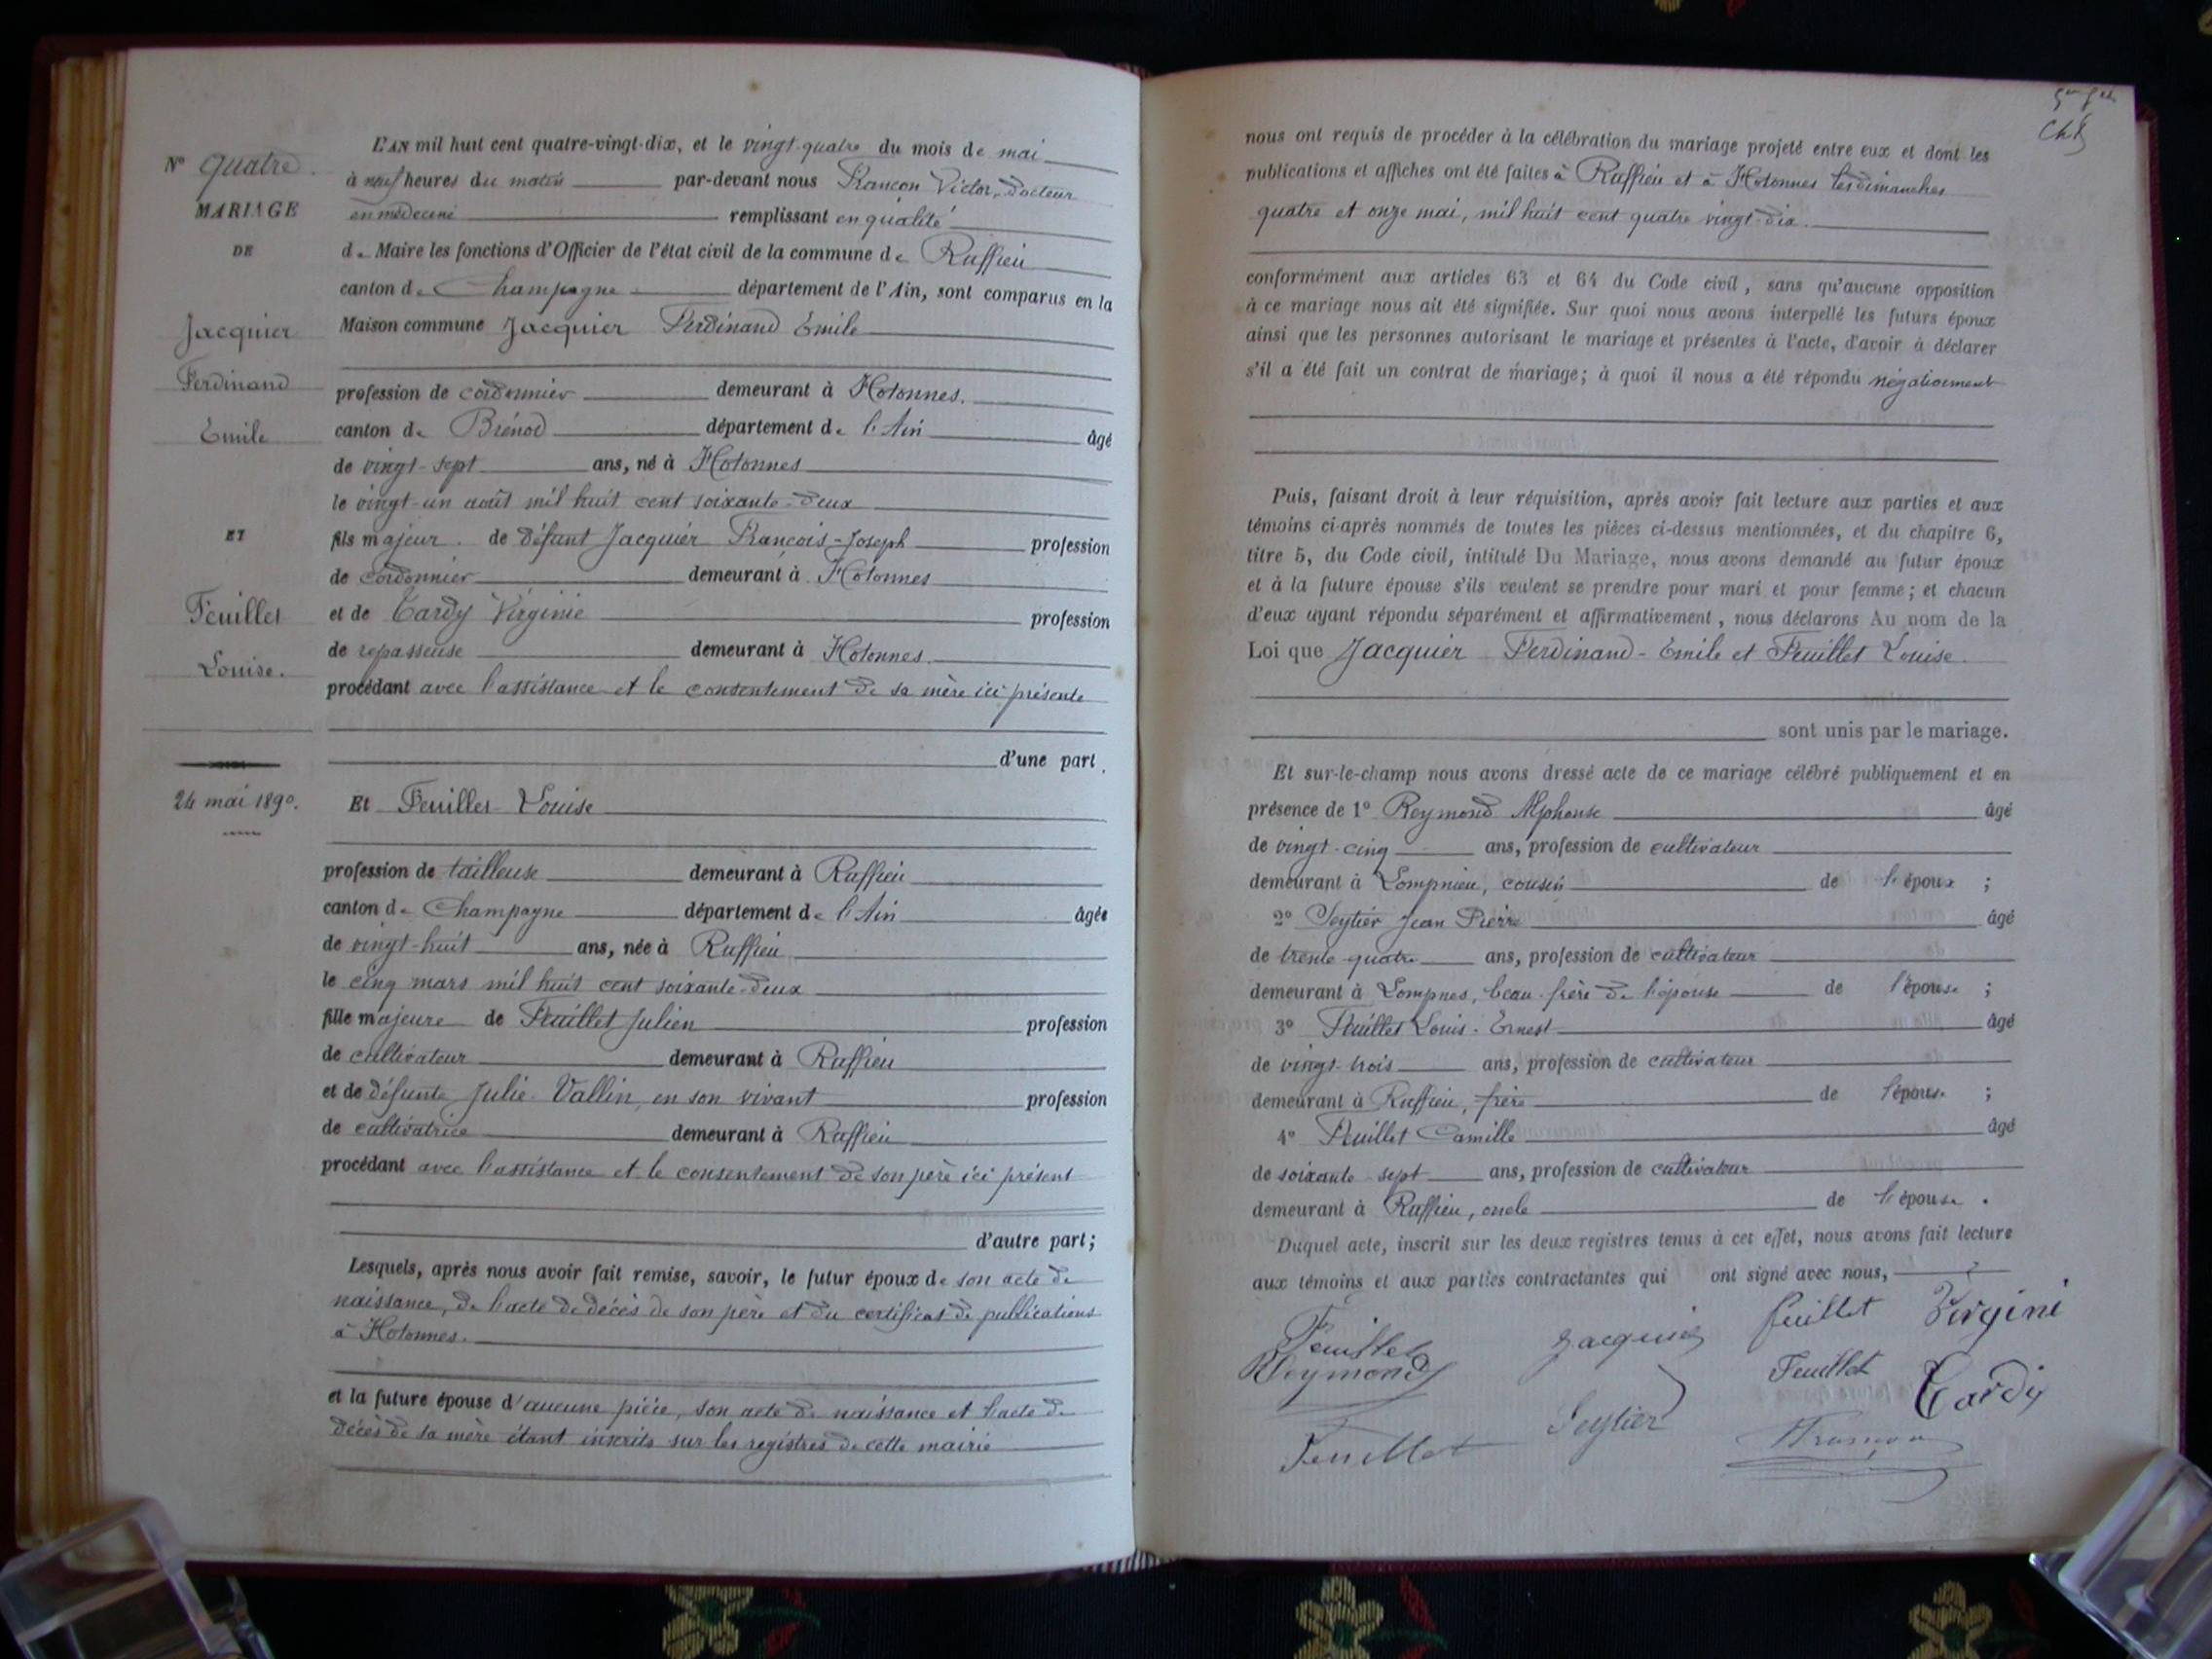 N° quatre.
MARIAGE
DE
Jacquier
Ferdinand
Emile
ET
Feuillet
Louise.
24 mai 1890.
L'AN mil huit cent quatre-vingt-dix, et le vingt-quatre du mois de mai
à neuf heures du matin par-devant nous Françon Victor, Docteur
en médecine remplissant en qualité
de Maire les fonctions d'Officier de l'état civil de la commune de Ruffieu
canton de Champagne département de l'Ain, sont comparus en la
Maison commune Jacquier Ferdinand Emile
profession de cordonnier demeurant à Hotonnes.
canton de Brénod département de l'Ain âgé
de vingt-sept ans, né à Hotonnes
le vingt-un août mil huit cent soixante-deux
fils majeur. de défunt Jacquier François-Joseph profession
de cordonnier demeurant à Hotonnes
et de Tardy Virginie profession
de repasseuse demeurant à Hotonnes.
procédant avec l'assistance et le consentement de sa mère ici présente
d'une part.
Et Feuillet Louise
profession de tailleuse demeurant à Ruffieu
canton de Champagne département de l'Ain âgée
de vingt-huit ans, née à Ruffieu
le cinq mars mil huit cent soixante-deux
fille majeure de Feuillet Julien profession
de cultivateur demeurant à Ruffieu
et de défunte Julie Vallin, en son vivant profession
de cultivatrice demeurant à Ruffieu
procédant avec l'assistance et le consentement de son père ici présent
d'autre part;
Lesquels, après nous avoir fait remise, savoir, le futur époux de son acte de
naissance, de l'acte de décès de son père et du certificat de publications
à Hotonnes.
et la future épouse d'aucune pièce, son acte de naissance et l'acte de
décès de sa mère étant inscrits sur les registres de cette mairie
nous ont requis de procéder à la célébration du mariage projeté entre eux et dont les
publications et affiches ont été faites à Ruffieu et à Hotonnes les dimanches
quatre et onze mai, mil huit cent quatre vingt-dix.
conformément aux articles 63 et 64 du Code civil, sans qu'aucune opposition
à ce mariage nous ait été signifiée. Sur quoi nous avons interpellé les futurs époux
ainsi que les personnes autorisant le mariage et présentes à l'acte, d'avoir à déclarer
s'il a été fait un contrat de mariage; à quoi il nous a été répondu négativement
Puis, faisant droit à leur réquisition, après avoir fait lecture aux parties et aux
témoins ci-après nommés de toutes les pièces ci-dessus mentionnées, et du chapitre 6,
titre 5, du Code civil, intitulé Du Mariage, nous avons demandé au futur époux
et à la future épouse s'ils veulent se prendre pour mari et pour femme; et chacun
d'eux ayant répondu séparément et affirmativement, nous déclarons Au nom de la
Loi que Jacquier Ferdinand-Emile et Feuillet Louise.
sont unis par le mariage.
Et sur-le-champ nous avons dressé acte de ce mariage célébré publiquement et en
présence de 1° Reymond Alphonse âgé
de vingt-cinq ans, profession de cultivateur
demeurant à Lompnieu, cousin de l'époux ;
2° Seytier Jean Pierre âgé
de trente quatre ans, profession de cultivateur
demeurant à Lompnes, beau-frère de l'épouse de l'épouse ;
3° Feuillet Louis-Ernest âgé
de vingt-trois ans, profession de cultivateur
demeurant à Ruffieu, frère de l'épouse ;
4° Feuillet Camille âgé
de soixante-sept ans, profession de cultivateur
demeurant à Ruffieu, oncle de l'épouse.
Duquel acte, inscrit sur les deux registres tenus à cet effet, nous avons fait lecture
aux témoins et aux parties contractantes qui ont signé avec nous,
Feuillet Jacquier feuillet Virginie
Reymond Feuillet Tardy
Feuillet Seytier Françon